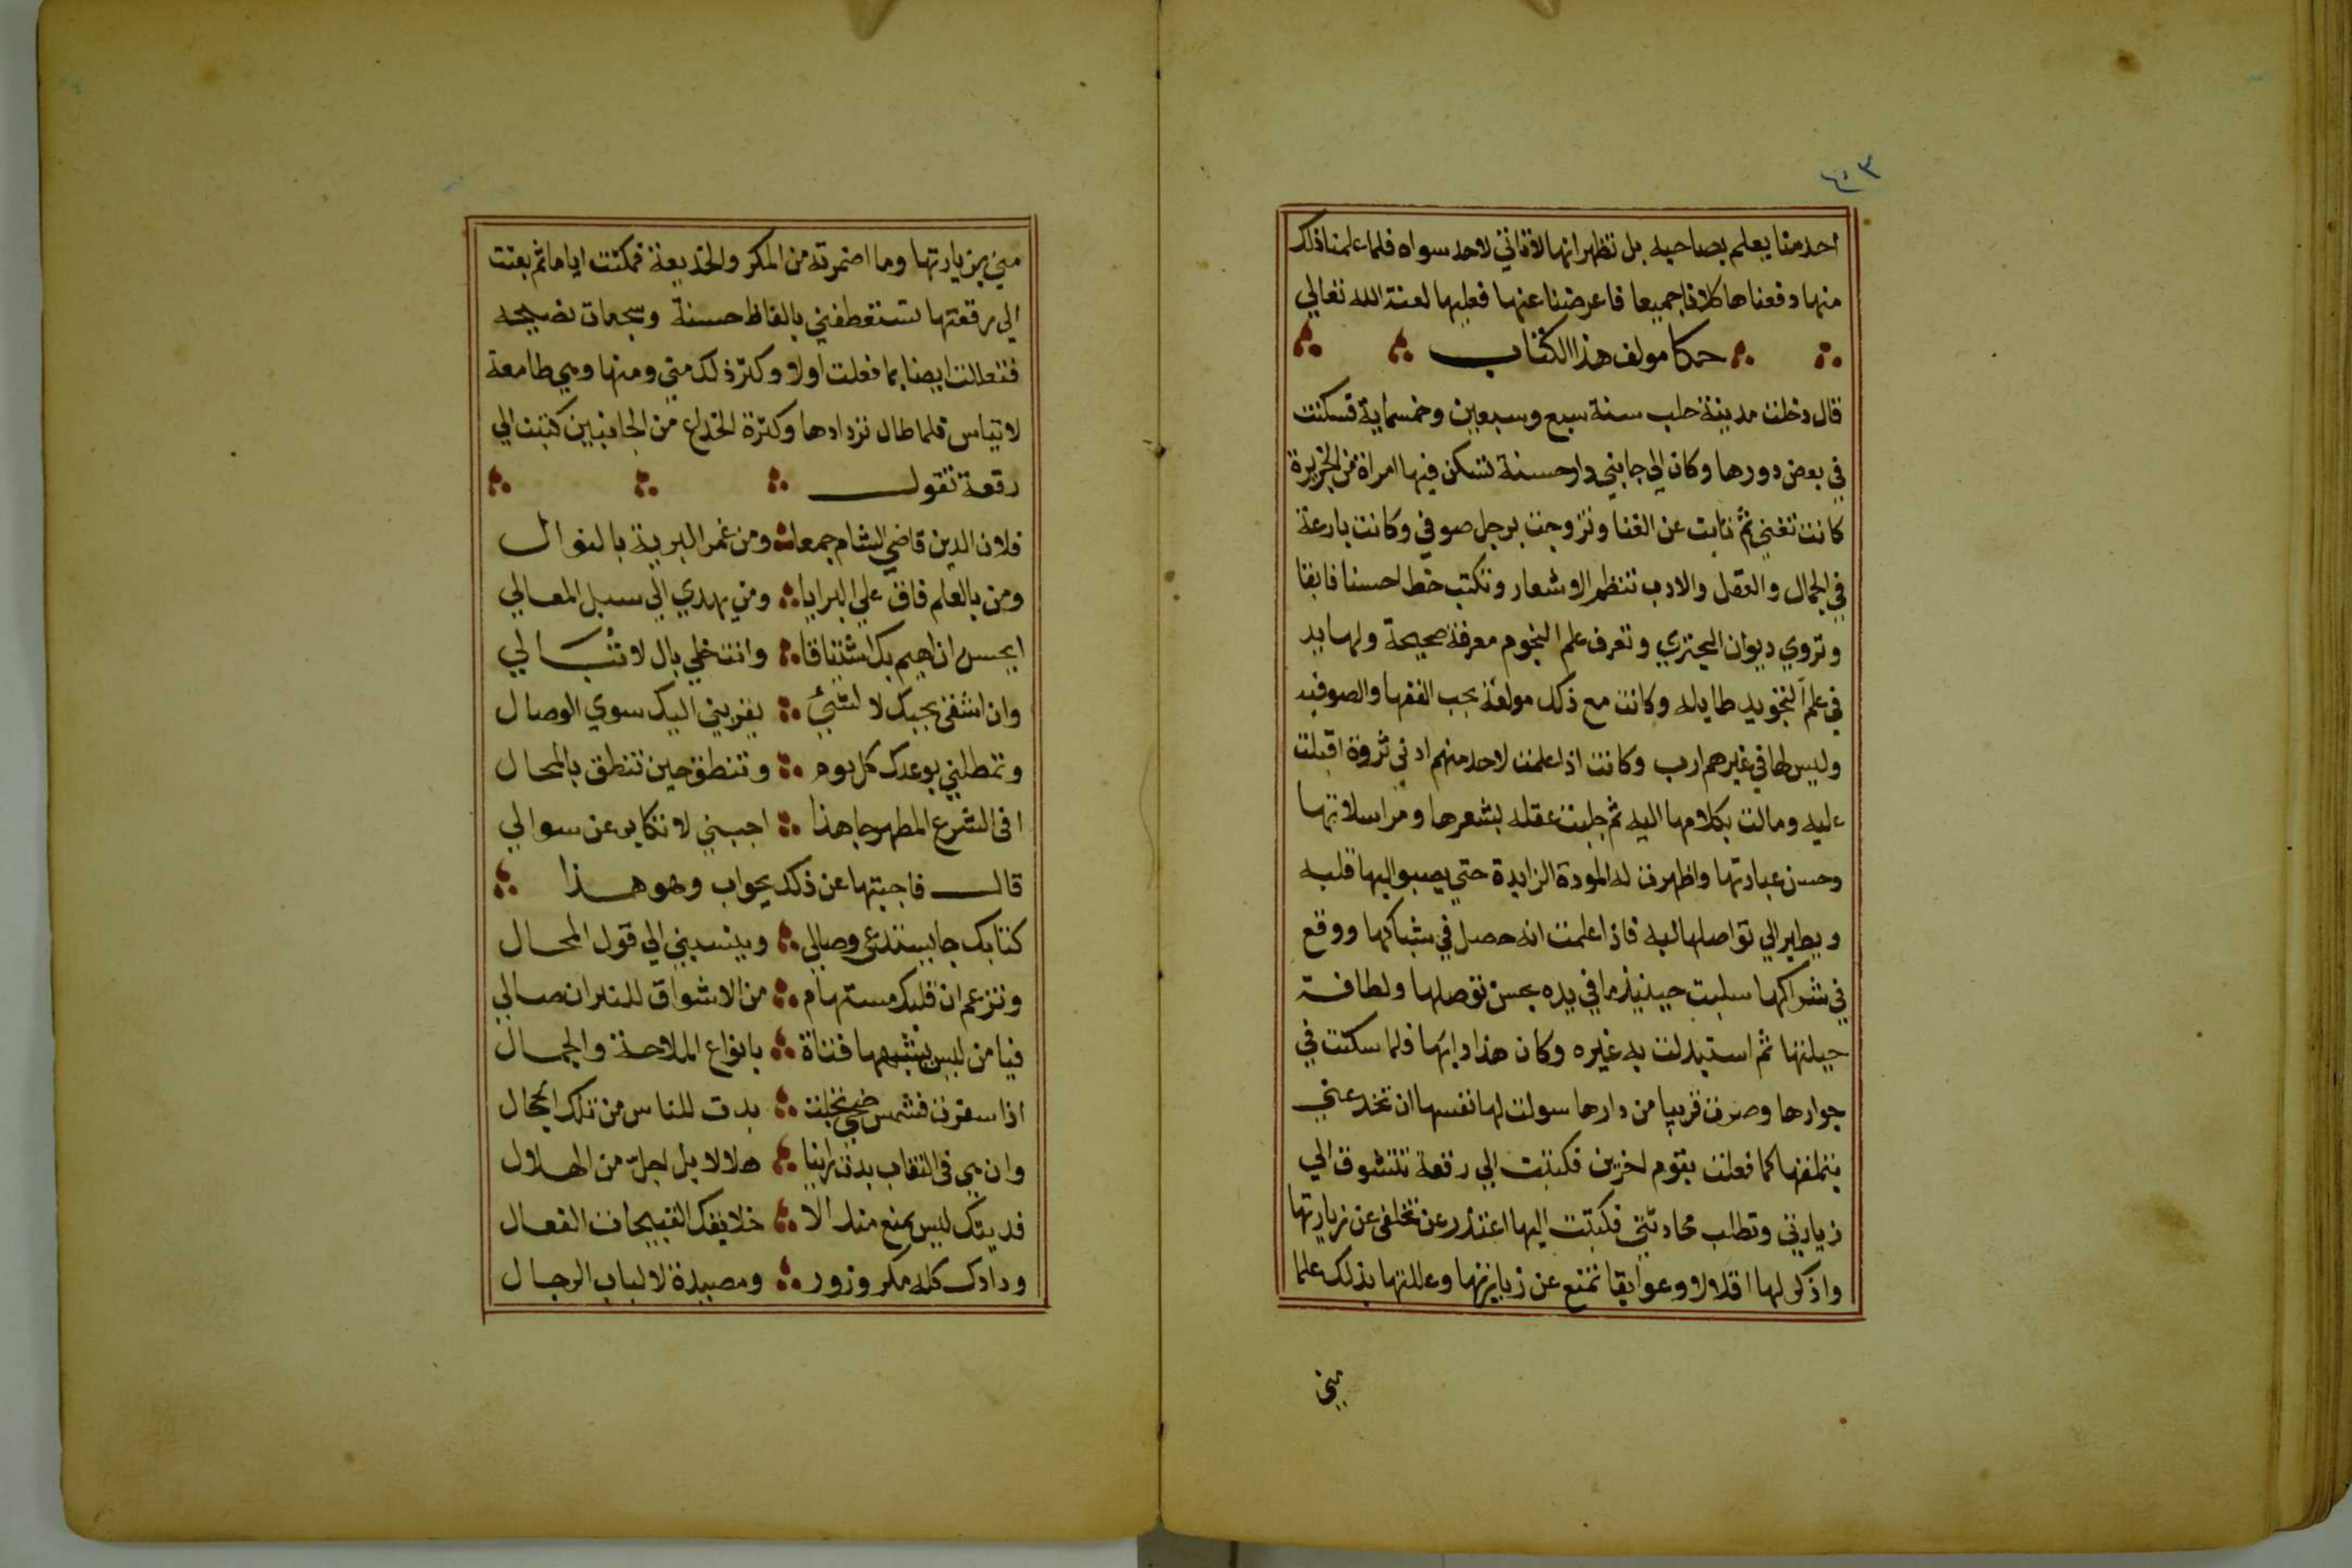 ٤٠٣
احد منا يعلم بصاحبه بل تظهر انها لا تاتي لاحد سواه فلما علمنا ذلك
منها دفعناها كلانا جميعا فاعرضنا عنها فعليها لعنة الله تعالي
حكا مولف هذا الكتاب
قال دخلت مدينة حلب سنة سبع وسبعين وخمسماية فسكنت
في بعض دورها وكان الي جانبي دار حسنة تسكن فيها امراة من الجزيرة
كانت تغني ثم تابت عن الغنا وتزوجت برجل صوفي وكانت بارعة
في الجمال والعقل والادب تنظم الاشعار وتكتب خطا حسنا فايقا
وتروي ديوان البحتري وتعرف علم النجوم معرفة صحيحة ولها يد
في علم التجويد طايله وكانت مع ذلك مولعة بحب الفقها والصوفيه
وليس لها في غيرهم ارب وكانت اذا علمت لاحد منهم ادني ثروة اقبلت
عليه ومالت بكلامها اليه ثم جلبت عقله بشعرها ومراسلاتها
وحسن عبارتها واظهرت له المودة الزايدة حتي يصبوا اليها قلبه
ويطير الي تواصلها لبه فاذا علمت انه حصل في شباكها ووقع
في شراكها سلبت حينيذ ما في يده بحسن توصلها ولطافة
حيلتها ثم استبدلت به غيره وكان هذا دابها فلما سكنت في
جوارها وصرت قريبا من دارها سولت لها نفسها ان تخدعني
بتملقها كما فعلت بقوم اخرين فكتبت الي رقعة تتشوق الي
زيارتي وتطلب محادثتي فكتبت اليها اعتذر عن تخلفي عن زيارتها
واذكر لها اقلالا وعوايقا تمنع عن زيارتها وعللتها بذلك علما
مني
مني بزيارتها وما اضمرته من المكر والخديعة فمكثت اياما ثم بعثت
الي رقعتها تستعطفني بالفاظ حسنة وسجعات فصيحه
فتعاللت ايضا بما فعلت اولا وكثر ذلك مني ومنها وهي طامعة
لا تياس فلما طال تردادها وكثرة الخداع من الجانبين كتبت الي
رقعة تقول
فلان الدين قاضي الشام جمعا ومن غمر البرية بالنوال
ومن بالعلم فاق علي البرايا ومن يهدي الي سبل المعالي
ايحسن ان اهيم بك اشتياقا وانت خلي بال لا تبالي
وان اشقي بحبك لا لشيء يقربني اليك سوي الوصال
وتمطلني بوعدك كل يوم وتنطق حين تنطق بالمحال
افي الشرع المطهر جا هذا اجبني لا تكابر عن سوالي
قال فاجبتها عن ذلك بجواب وهو هذا
كتابك جا يستدعي وصالي وينسبني الي قول المحال
وتزعم ان قلبك مستهام من الاشواق للنيران صالي
فيا من ليس يشبهها فتاة بانواع الملاحة والجمال
اذا سفرت فشمس ضحي تجلت بدت للناس من تلك الحجال
وان هي في النقاب بدت راينا هلالا بل اجل من الهلال
فديتك ليس يمنع منك الا خلايقك القبيحات الفعال
ودادك كله مكر وزور ومصيدة لالباب الرجال